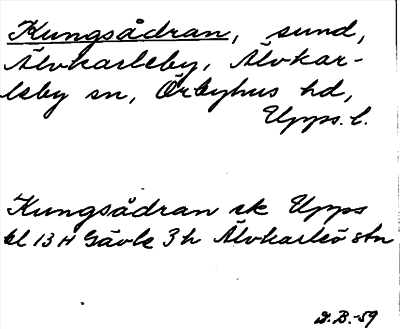 Kungsådran, sund,
Älvkarleby, Älvkar-
leby sn, Örbyhus hd,
Upps. l.
Kungsådran ek Upps
bl 13 H Gävle 3 h Älvkarleö stn
D. B. -59